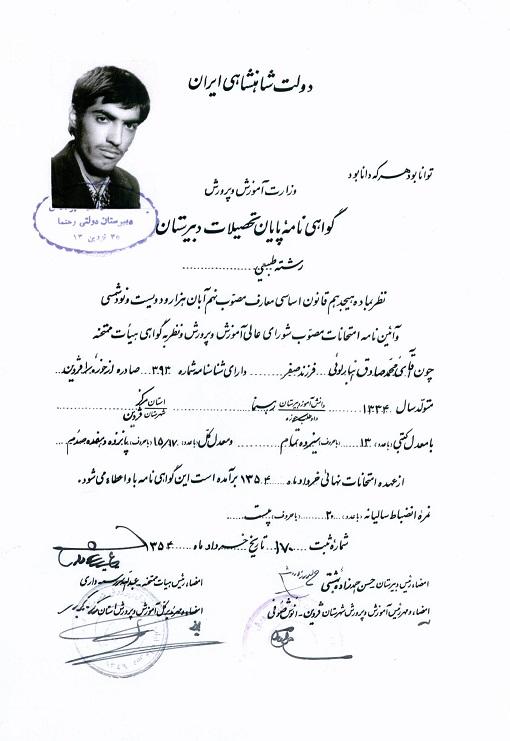 دولت شاهنشاهی ایران
توانا بود هر که دانا بود
وزارت آموزش و پرورش
دبیرستان دولتی رهنما
گواهی نامهٔ پایان تحصیلات دبیرستان
رشته طبیعی
نظر بماده هیجدهم قانون اساسی معارف مصوب نهم آبان هزار و دویست و نود شمسی
و آئین نامه امتحانات مصوب شورای عالی آموزش و پرورش و نظر به گواهی هیأت ممتحنه
چون آقای محمد صادق فرزند صفر دارای شناسنامه شماره ۳۹۳ صادره از حوزه قزوین
متولد سال ۱۳۳۴ دانش آموز دبیرستان استان مرکز
داوطلب شهرستان قزوین
با معدل کتبی (با عدد) ۱۳ (با حروف) سیزده تمام و معدل کل (با عدد) ۱۵/۱۷ (با حروف) پانزده و هفده صدم
از عهده امتحانات نهائی خرداد ماه ۱۳۵۴ برآمده است این گواهی نامه با و اعطاء می شود.
نمره انضباط سالیانه (با عدد) ۲۰ (با حروف) بیست
شماره ثبت ۱۷۰ تاریخ خرداد ماه ۱۳۵۴
امضاء رئیس دبیرستان حسن امضاء رئیس هیأت ممتحنه
امضاء و مهر رئیس آموزش و پرورش شهرستان قزوین امضاء و مهر مدیر کل آموزش و پرورش استان مرکز